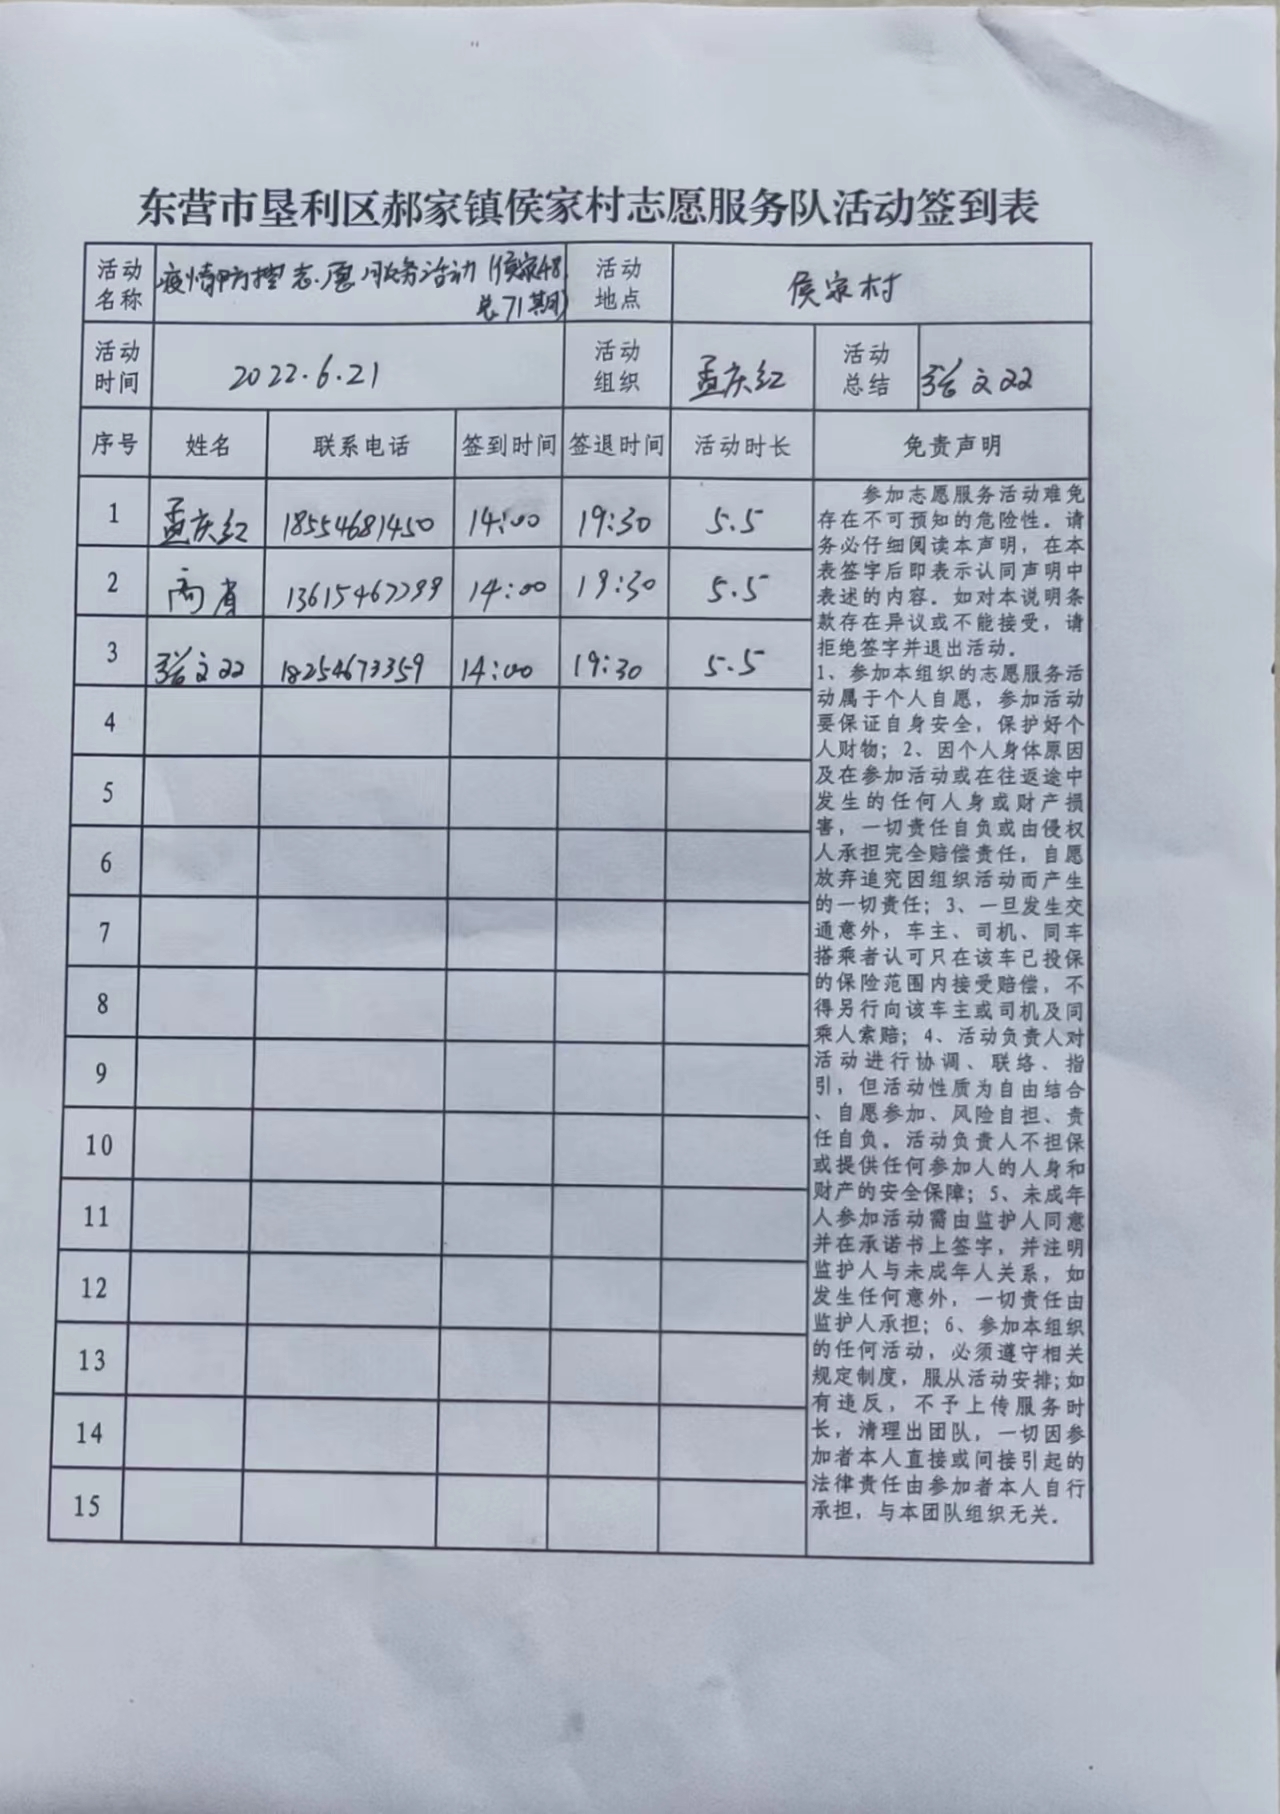 东营市垦利区郝家镇侯家村志愿服务队活动签到表
活动名称 疫情防控志愿服务活动(侯家48, 总71期) 活动地点 侯家村
活动时间 2022.6.21 活动组织 孟庆红 活动总结 张文双
序号 姓名 联系电话 签到时间 签退时间 活动时长 免责声明
1 孟庆红 18554681450 14:00 19:30 5.5
2 商省 14:00 19:30 5.5
3 张文双 18254673359 14:00 19:30 5.5
4
5
6
7
8
9
10
11
12
13
14
15
参加志愿服务活动难免
存在不可预知的危险性。请
务必仔细阅读本声明，在本
表签字后即表示认同声明中
表述的内容。如对本说明条
款存在异议或不能接受，请
拒绝签字并退出活动。
1、参加本组织的志愿服务活
动属于个人自愿，参加活动
要保证自身安全，保护好个
人财物；2、因个人身体原因
及在参加活动或在往返途中
发生的任何人身或财产损
害，一切责任自负或由侵权
人承担完全赔偿责任，自愿
放弃追究因组织活动而产生
的一切责任；3、一旦发生交
通意外，车主、司机、同车
搭乘者认可只在该车已投保
的保险范围内接受赔偿，不
得另行向该车主或司机及同
乘人索赔；4、活动负责人对
活动进行协调、联络、指
引，但活动性质为自由结合
、自愿参加、风险自担、责
任自负。活动负责人不担保
或提供任何参加人的人身和
财产的安全保障；5、未成年
人参加活动需由监护人同意
并在承诺书上签字，并注明
监护人与未成年人关系，如
发生任何意外，一切责任由
监护人承担；6、参加本组织
的任何活动，必须遵守相关
规定制度，服从活动安排；如
有违反，不予上传服务时
长，清理出团队，一切因参
加者本人直接或间接引起的
法律责任由参加者本人自行
承担，与本团队组织无关。